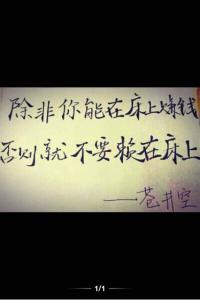 除非你能在床上赚钱
否则就不要赖在床上
——苍井空
1/1